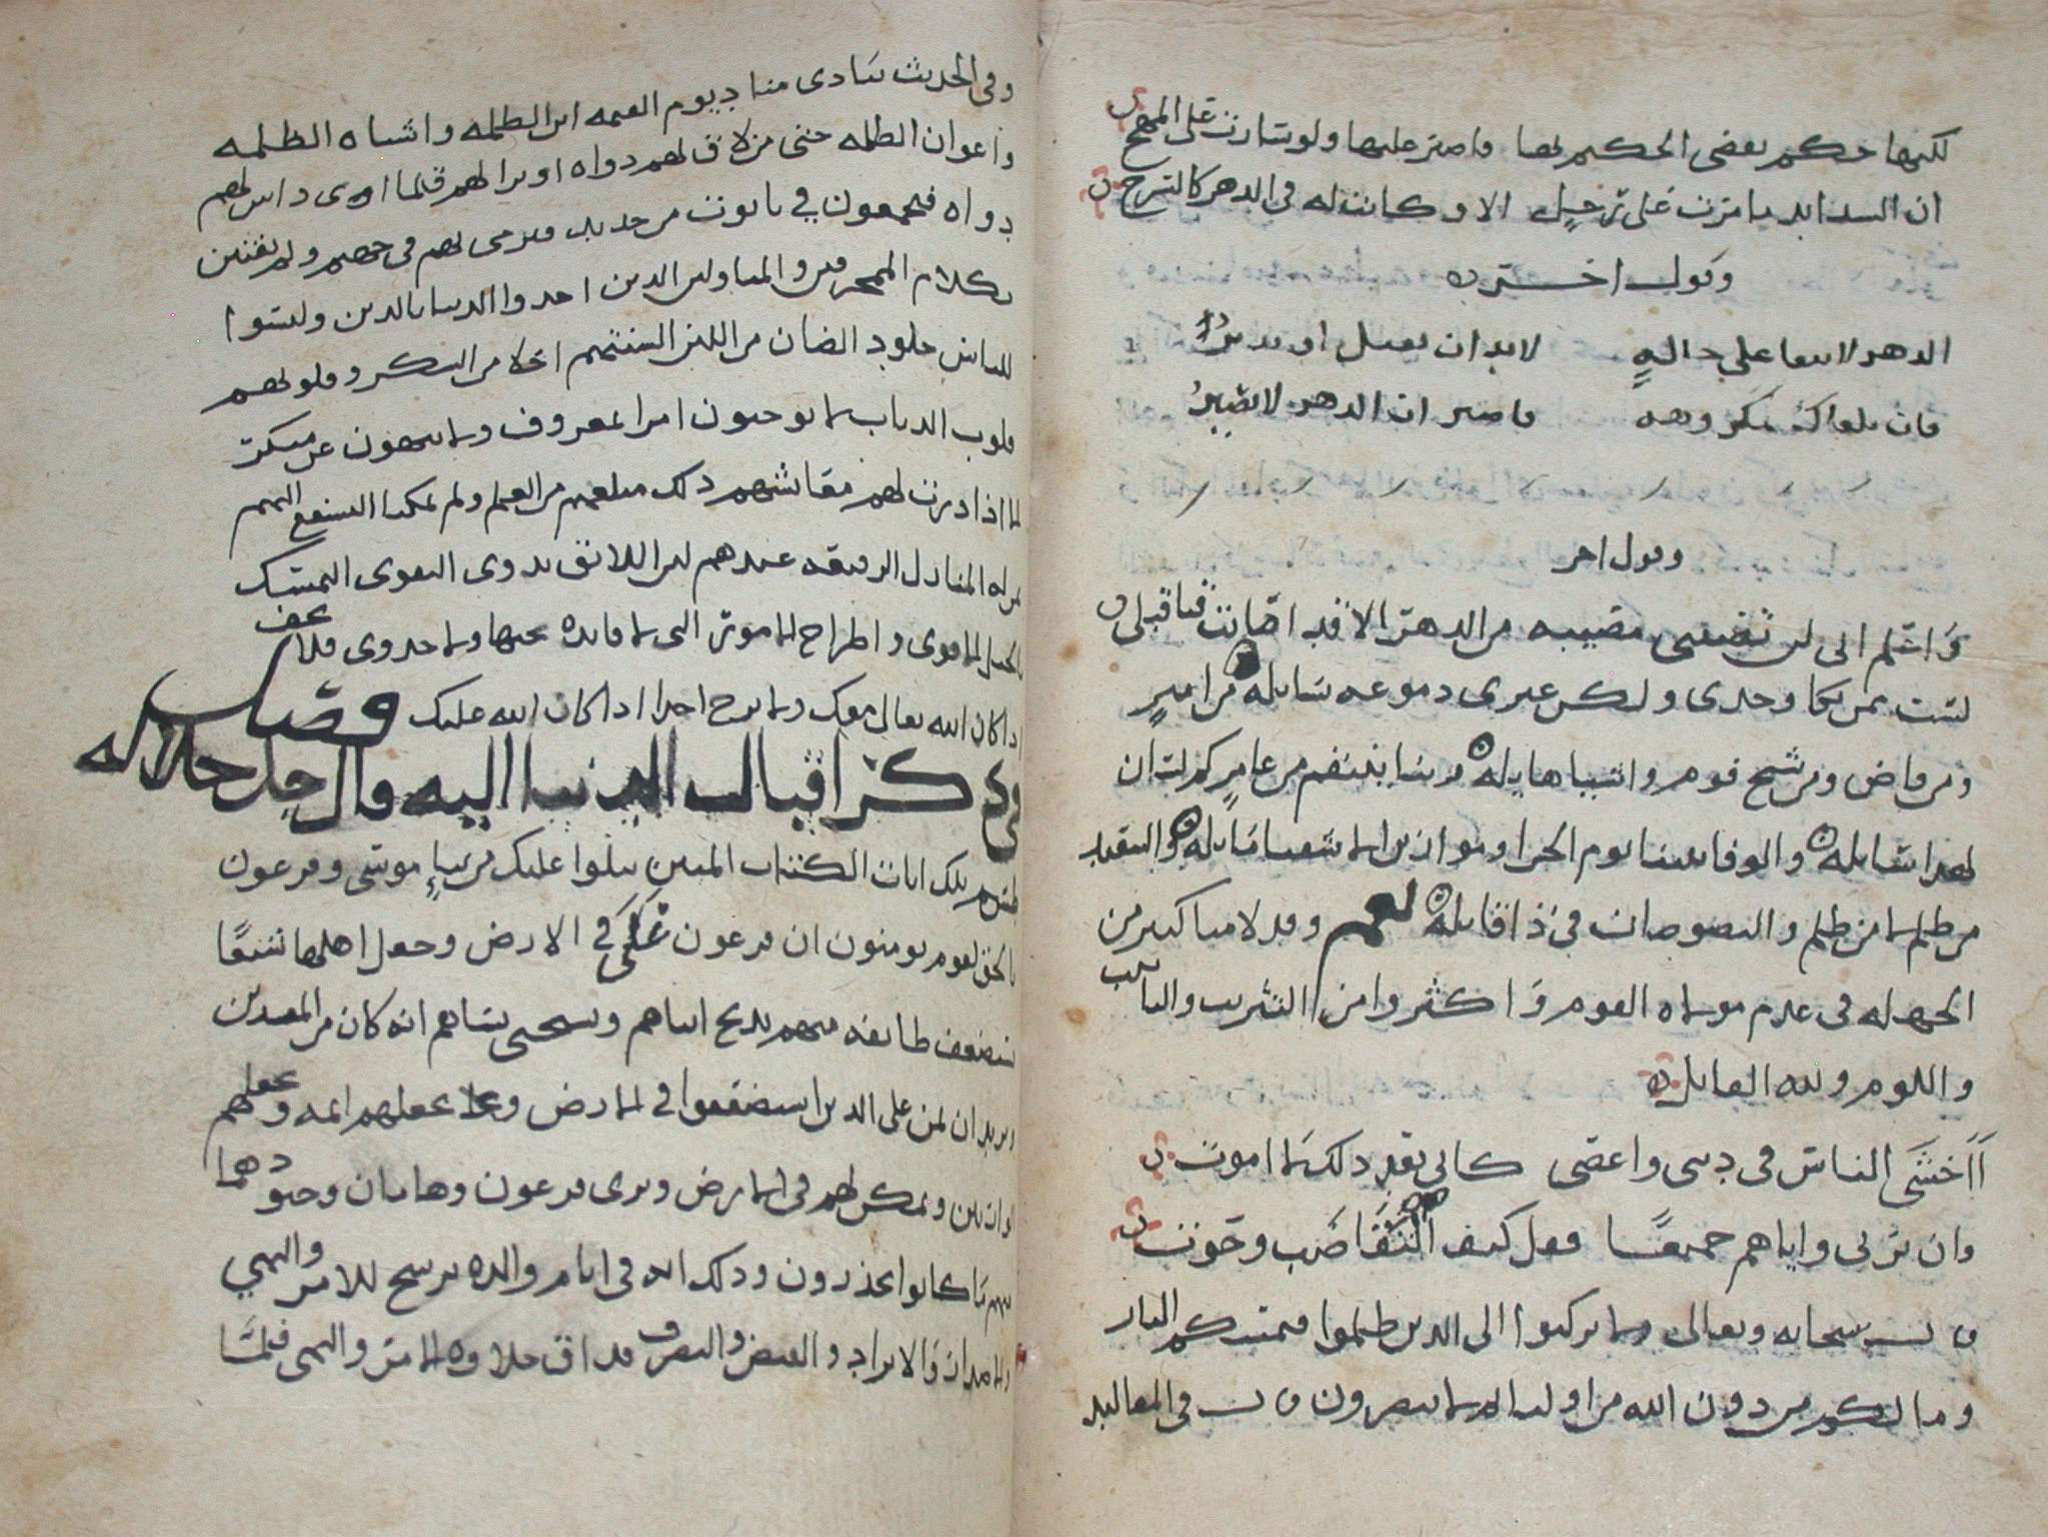 لكنها حكم بعض الحكيم لها فاصبر عليها ولو سارت على المهج
ان الشدايد ما مرت على رجل الا وكانت له في الدهر كالسرج
وقول اخر
الدهر لا يبقا على حالةٍ لا بد ان يقبل او يدبرُ
فان تلقاك بمكروهه فاصبر ان الدهر لا يصبرُ
وقول اخر
واعلم اني لن تصبني مصيبه من الدهر الا قد اصابت فتا قبلي
لست بمن بكا وحدي ولكن غيري دموعه سايله من امير
ومن قاض ومن شيخ قوم واشيا هايله ربنا ينتقم من عامر
لهذا والوفا بيننا يوم الجزا وموازين
من ظلم لمن ظلم والنصوصات في ذا قابله نعم وقد لامنا كثير من
الجهله في عدم مواساه القوم واكثروا من التثريب والتانيب
واللوم ولله القايل
أأخشى الناس في ديني واعصى كاني بعد ذلك لا اموت
وان نزلي واياهم جميعا فقل كيف التقاضب وحوت
قال سبحانه وتعالى ولا تركنوا الى الذين ظلموا فتمسكم النار
وما لكم من دون الله من اوليا ثم لا تنصرون قال في المقاليد
وفي الحديث ينادى مناد يوم القيمه اين الظلمه واشباه الظلمه
واعوان الظلمه حتى من لاق لهم دواه او برا لهم قلما
دواه فيجمعون في تابوت من حديد فيرمى بهم في جهنم ولم نفتتن
بكلام المحرفين والمتاولين الذين اخذوا الدنيا بالدين ولبسوا
للناس جلود الضان من اللين السنتهم احلا من السكر وقلوبهم
قلوب الدياب لا يوجبون امرا لمعروف ولا ينهون عن منكر
الا اذا درت لهم معائشهم ذلك مبلغهم من العلم ولم يمكنا
المنازل الرفيعه عندهم بل اللائق بذوي التقوى التمسك
بالحبل الاقوى واطراح الامور التي لا فايده تحتها ولا جدوى فلا تخف
اذا كان الله تعالى معك ولا ترج احدا اذا كان الله عليك فصل
في ذكر اقبال الدنيا اليه قال جل جلاله
طسم تلك ايات الكتاب المبين نتلوا عليك من نباء موسى وفرعون
بالحق لقوم يومنون ان فرعون علي في الارض وجعل اهلها شيعًا
يستضعف طايفه منهم يذبح ابناهم ويستحيي نساهم انه كان من المفسدين
ونريد ان نمن على الذين استضعفوا في الارض ونجعلهم ايمه ونجعلهم
الوارثين ونمكن لهم في الارض ونرى فرعون وهامان وجنودهما
منهم ما كانوا يحذرون وذلك انه في ايام والده ترشح للامر والنهي
والاصدار والايراد والقبض والتصرف فذاق حلاوة الامر والنهي فلما